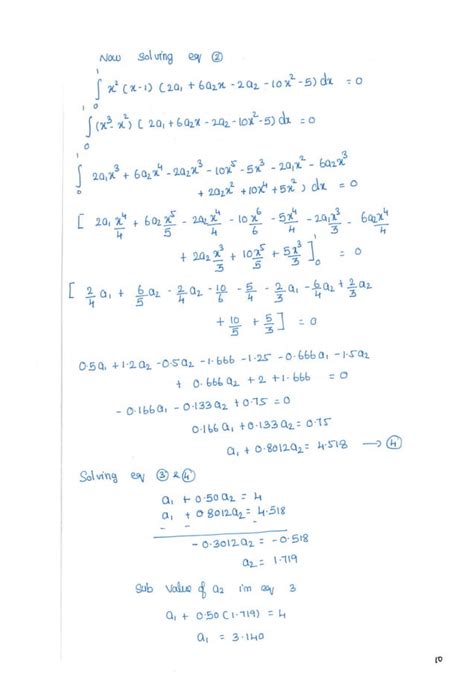 Now solving eq ②
∫₀¹ x² (x-1) (2a₁ + 6a₂x - 2a₂ - 10x² - 5) dx = 0
∫₀¹ (x³- x²) (2a₁ + 6a₂x - 2a₂ - 10x² - 5) dx = 0
∫₀¹ 2a₁x³ + 6a₂x⁴ - 2a₂x³ - 10x⁵ - 5x³ - 2a₁x² - 6a₂x³
+ 2a₂x² + 10x⁴ + 5x²) dx = 0
[ 2a₁ x⁴/4 + 6a₂ x⁵/5 - 2a₂ x⁴/4 - 10 x⁶/6 - 5x⁴/4 - 2a₁x³/3 - 6a₂x⁴/4
+ 2a₂ x³/3 + 10x⁵/5 + 5x³/3 ]₀¹ = 0
[ 2/4 a₁ + 6/5 a₂ - 2/4 a₂ - 10/6 - 5/4 - 2/3 a₁ - 6/4 a₂ + 2/3 a₂
+ 10/5 + 5/3 ] = 0
0.5a₁ + 1.2a₂ - 0.5a₂ - 1.666 - 1.25 - 0.666a₁ - 1.5a₂
+ 0.666a₂ + 2 + 1.666 = 0
- 0.166a₁ - 0.133a₂ + 0.75 = 0
0.166a₁ + 0.133a₂ = 0.75
a₁ + 0.8012a₂ = 4.518 → ④
Solving eq ③ & ④
a₁ + 0.50a₂ = 4
a₁ + 0.8012a₂ = 4.518
- - -
- 0.3012a₂ = - 0.518
a₂ = 1.719
Sub value of a₂ in eq 3
a₁ + 0.50 (1.719) = 4
a₁ = 3.140
10